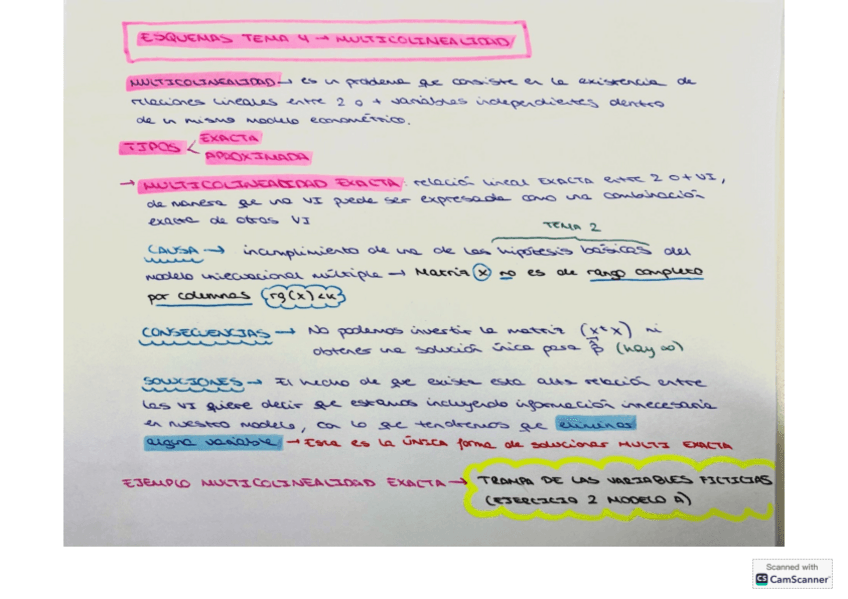 ESQUEMAS TEMA 4 → MULTICOLINEALIDAD
MULTICOLINEALIDAD → es un problema que consiste en la existencia de
relaciones lineales entre 2 o + variables independientes dentro
de un mismo modelo econométrico.
TIPOS < EXACTA
APROXIMADA
→ MULTICOLINEALIDAD EXACTA: relación lineal EXACTA entre 2 o + VI,
de manera que una VI puede ser expresada como una combinación
exacta de otras VI
TEMA 2
CAUSA → incumplimiento de una de las hipótesis básicas del
modelo uniecuacional múltiple → Matriz X no es de rango completo
por columnas (rg(x)<k)
CONSECUENCIAS → No podemos invertir la matriz (xᵗx) ni
obtener una solución única para β̂ (hay ∞)
SOLUCIONES → El hecho de que exista esta alta relación entre
las VI quiere decir que estamos incluyendo información innecesaria
en nuestro modelo, con lo que tendremos que eliminar
alguna variable → Esta es la ÚNICA forma de solucionar MULTI EXACTA
EJEMPLO MULTICOLINEALIDAD EXACTA → TRAMPA DE LAS VARIABLES FICTICIAS
(EJERCICIO 2 MODELO A)
Scanned with
CS CamScanner